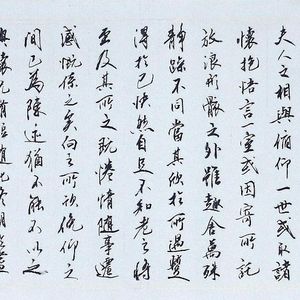 夫人之相與俯仰一世或取諸
懷抱悟言一室或因寄所託
放浪形骸之外雖趣舍萬殊
靜躁不同當其欣於所遇蹔
得於己快然自足不知老之將
至及其所之既惓情隨事遷
感慨係之矣向之所欣俛仰之
間已為陳迹猶不能不以之